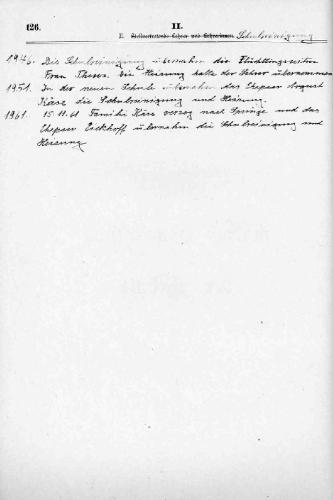 126.
II.
E. Stellvertretende Lehrer und Lehrerinnen. Schulreinigung
1946. Die Schulreinigung übernahm die Flüchtlingswitwe
Frau Theves. Die Heizung hatte der Lehrer übernommen
1951. In der neuen Schule übernahm das Ehepaar August
Käse die Schulreinigung und Heizung.
1961. 15.11.61 Familie Käse verzog nach Springe und das
Ehepaar Eickhoff übernahm die Schulreinigung und
Heizung